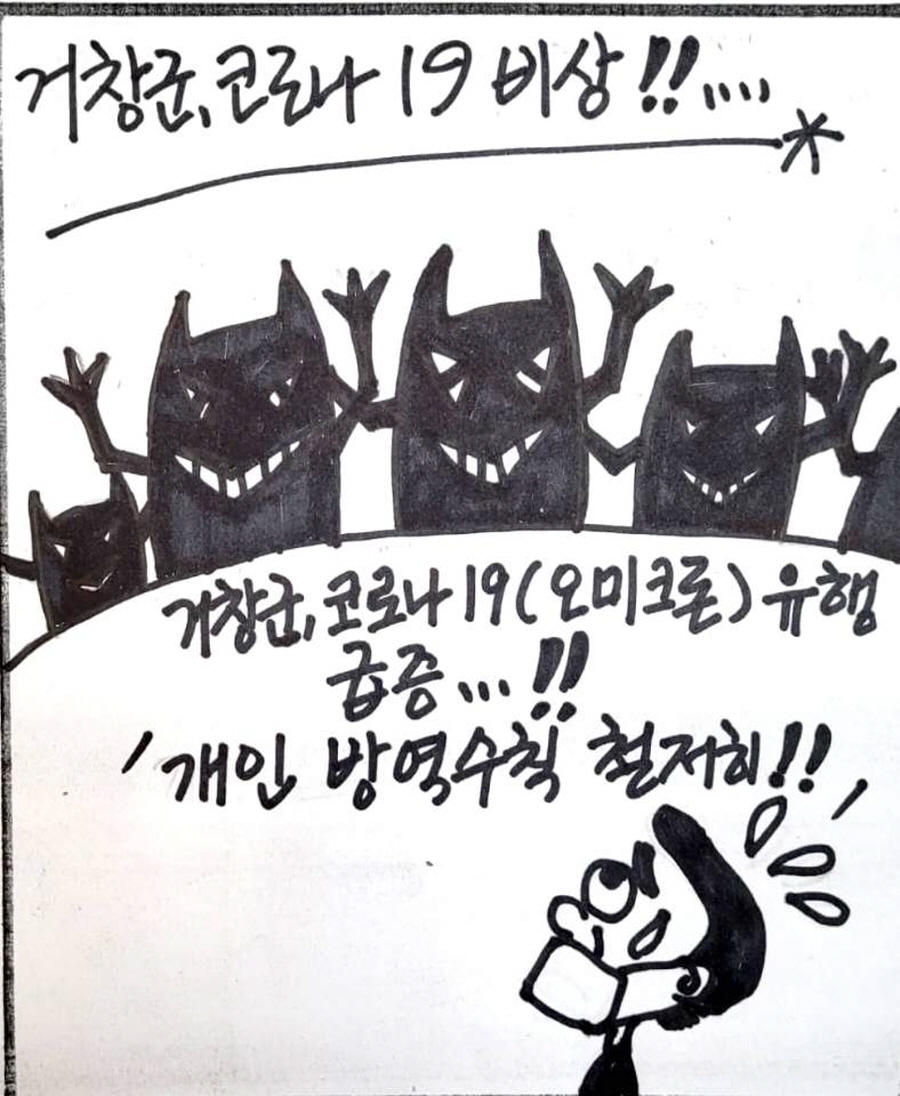 거창군, 코로나 19 비상!!....
거창군, 코로나 19 (오미크론) 유행
급증...!!
' 개인 방역수칙 철저히!! '